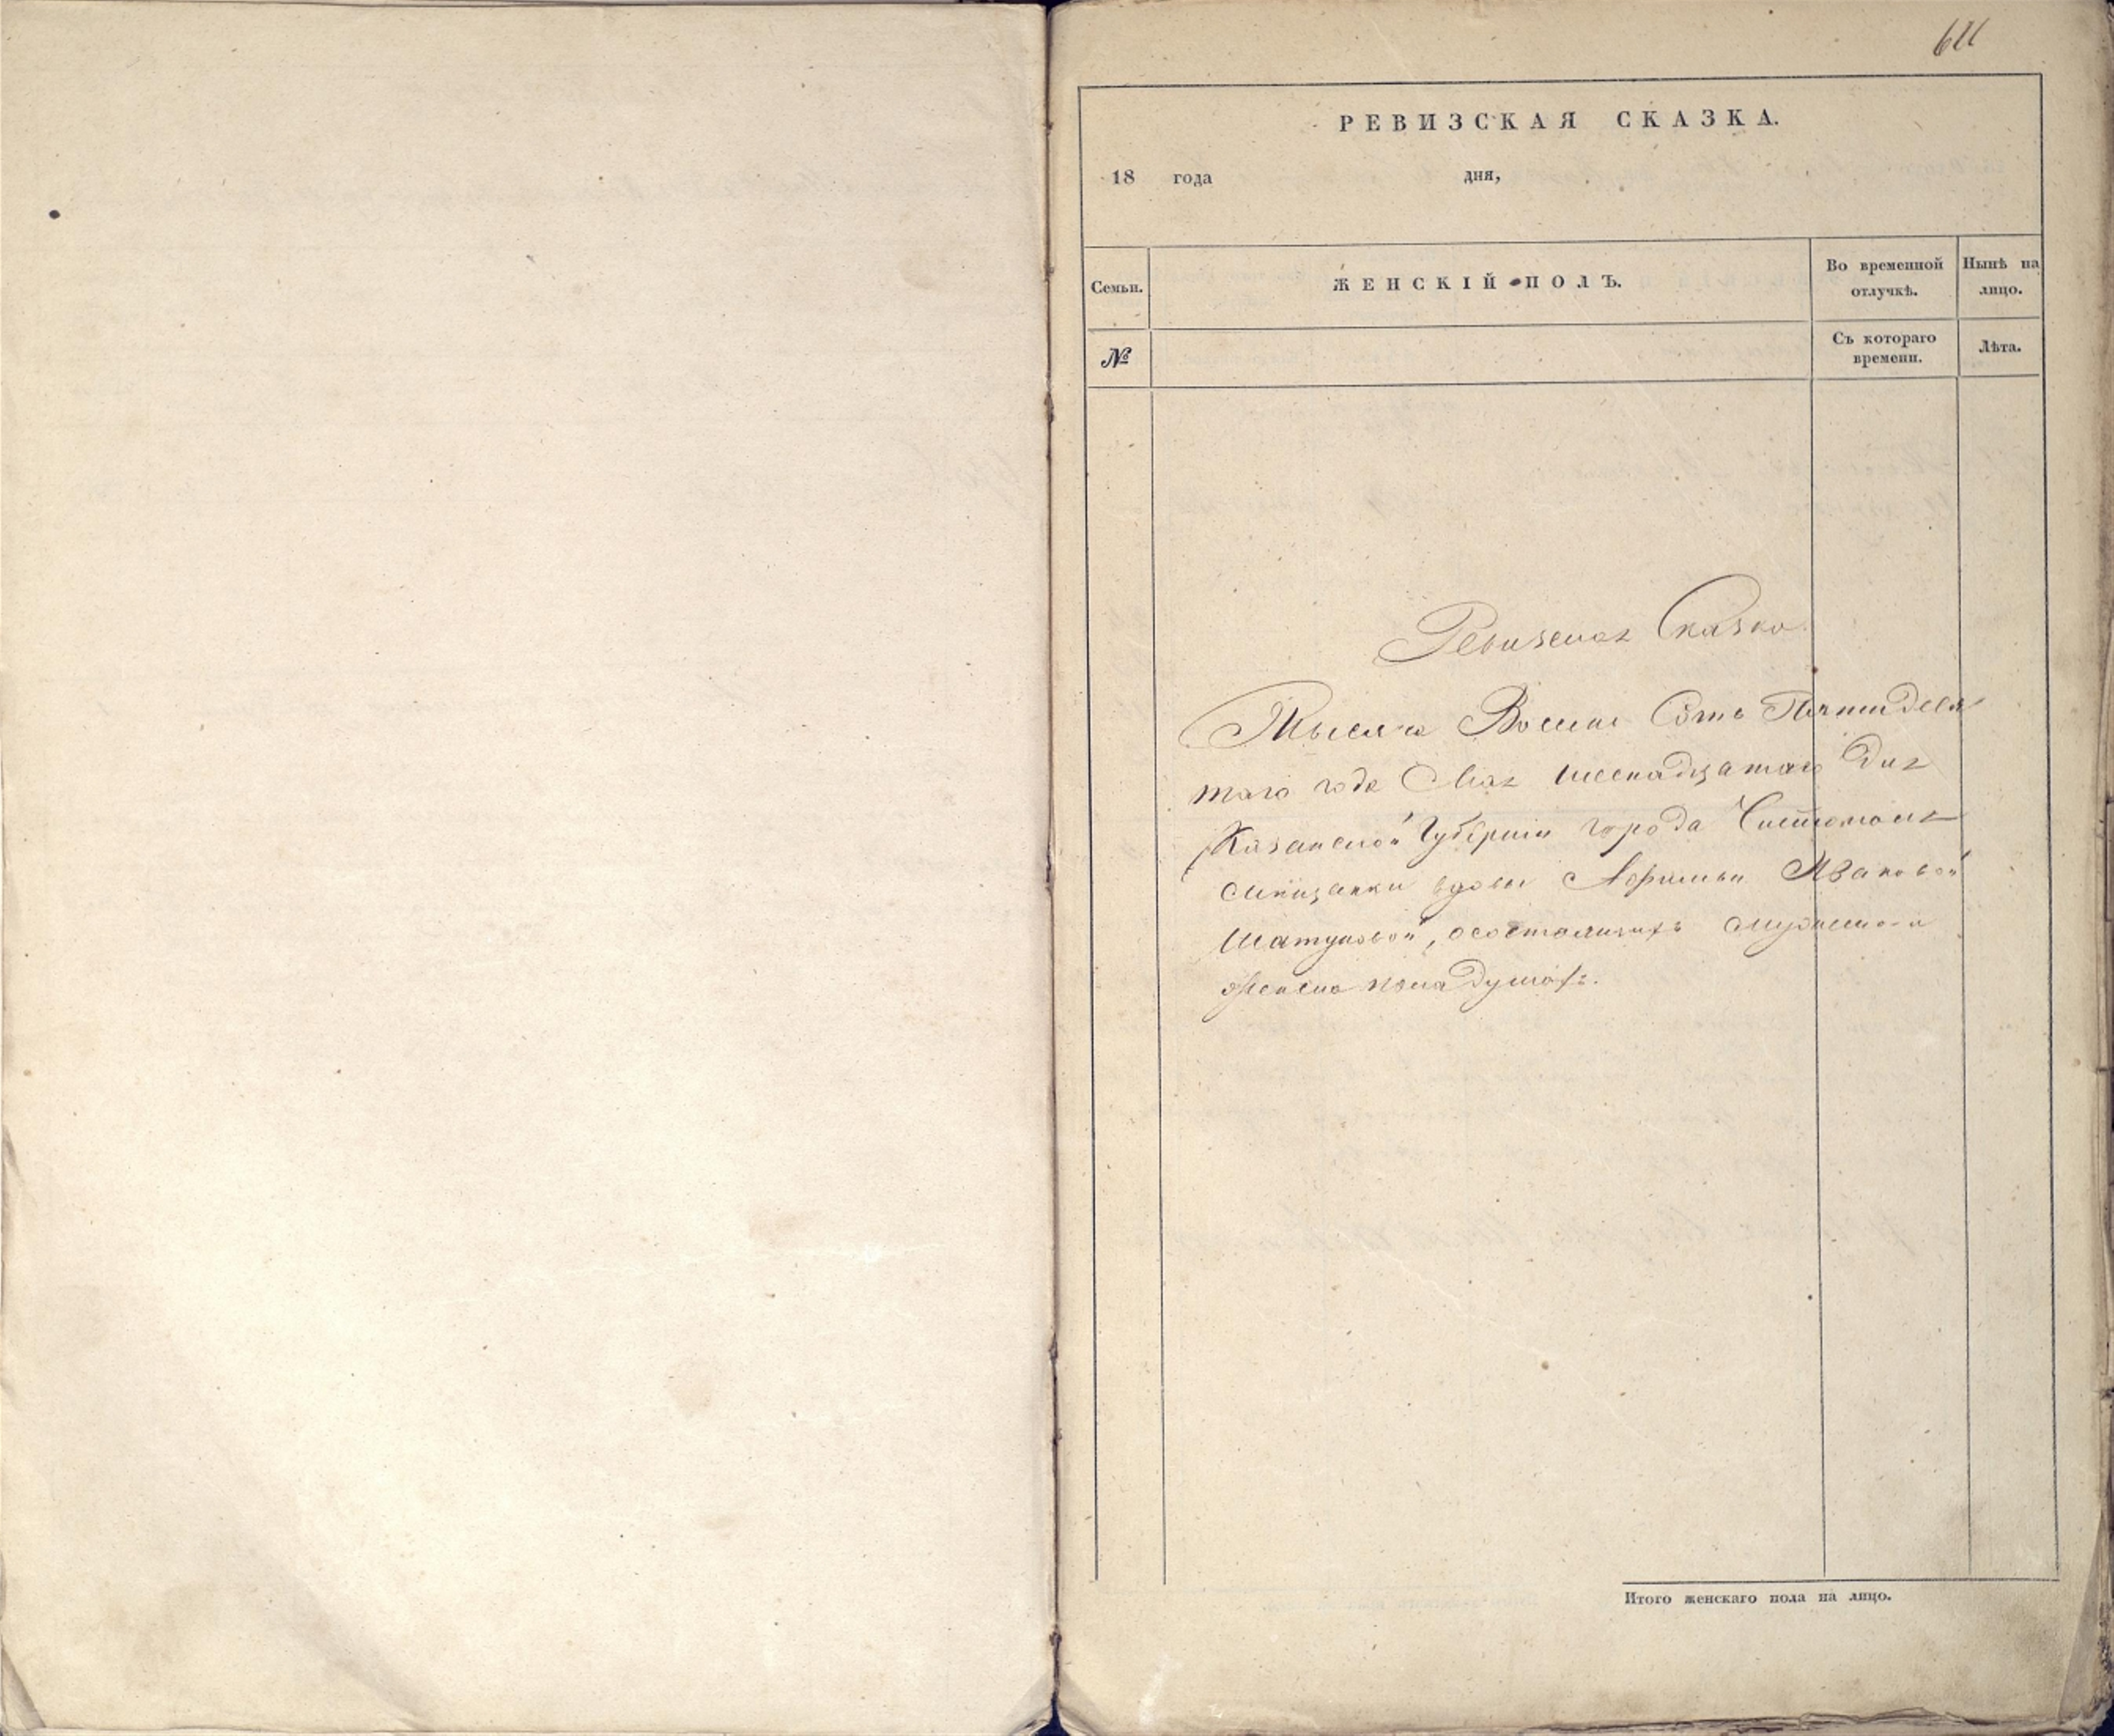 611
РЕВИЗСКАЯ СКАЗКА.
18 года дня,
Семьи. ЖЕНСКІЙ ПОЛЪ. Во временной отлучкѣ. Нынѣ на лицо.
№ Съ котораго времени. Лѣта.
Ревизская Сказка
Тысяча Восемь Сотъ Пятидеся
таго года Мая шеснадцатаго дня
Казанской Губерніи города Чистополя
мѣщанки вдовы Афимьи Ивановой
Шатуновой, осостоящихъ мужеска и
женска пола душахъ.
Итого женскаго пола на лицо.